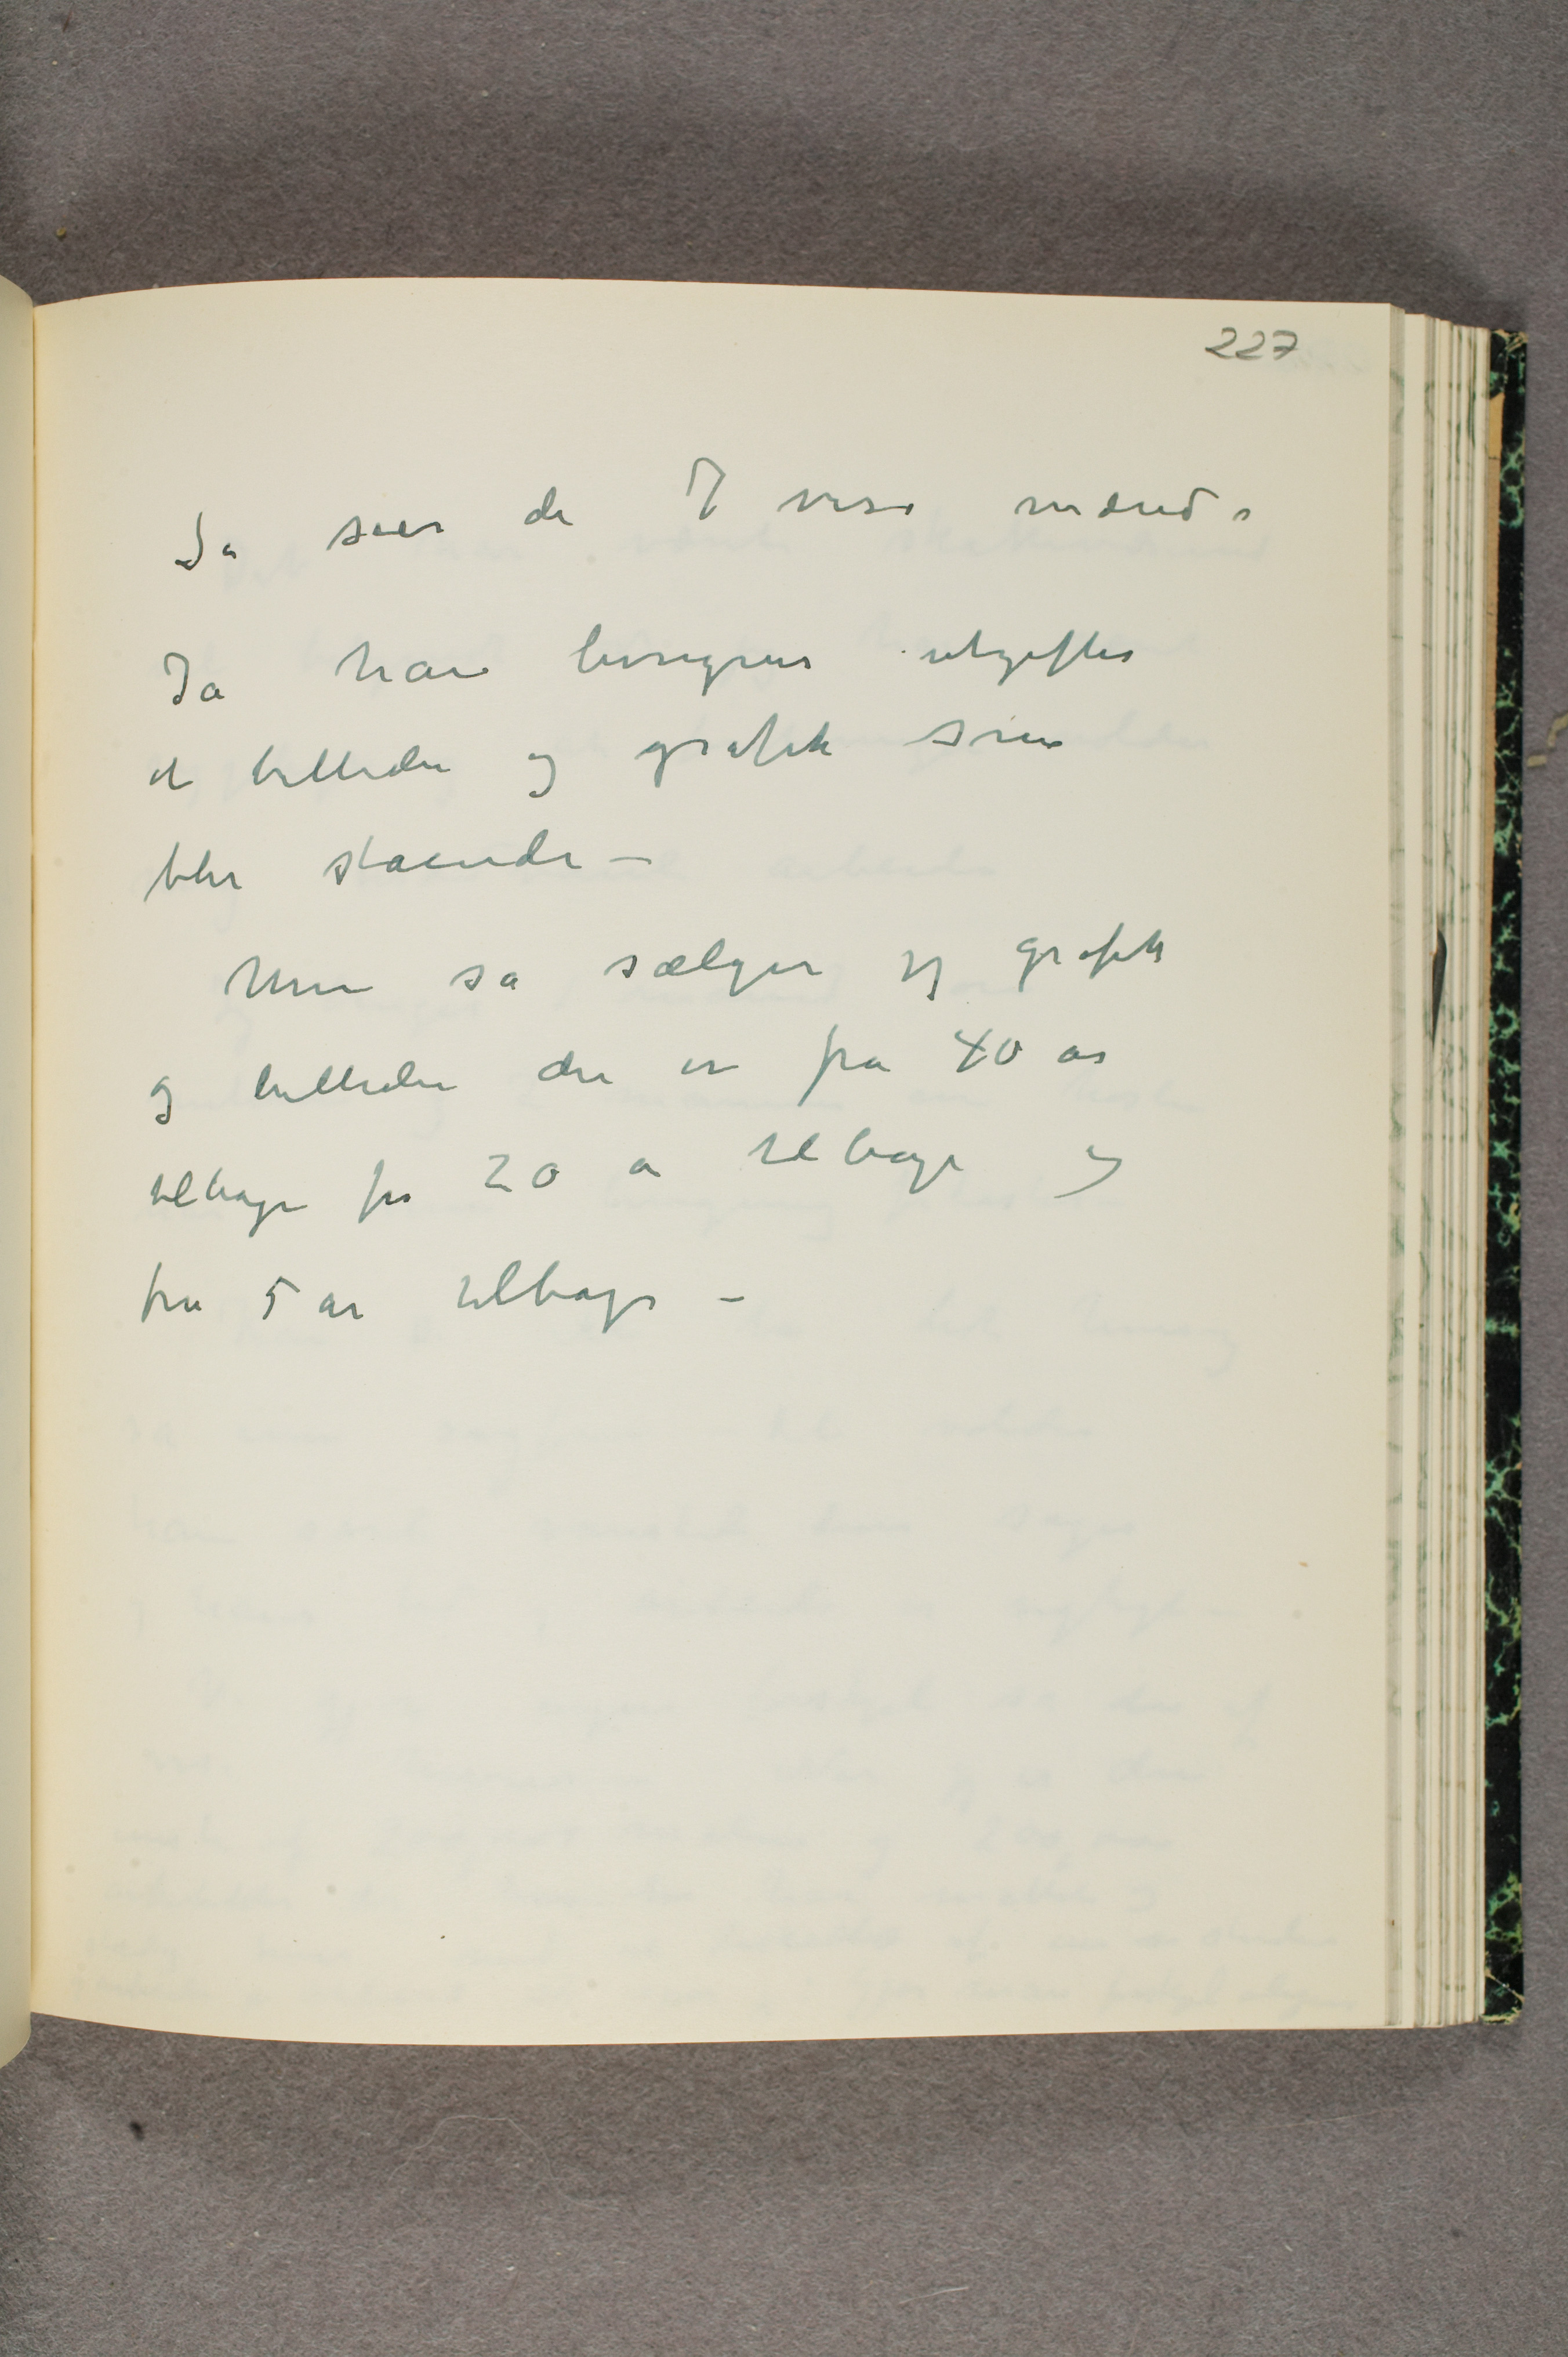 227
Så sier de 7 vise mænd.
Ja han
utgifter
et billeder og grafik som
blir stående –
Men så sælger jeg grafik
og billeder der er fra 40 år
tilbage fra 20 å tilbage og
fra 5 år tilbage –